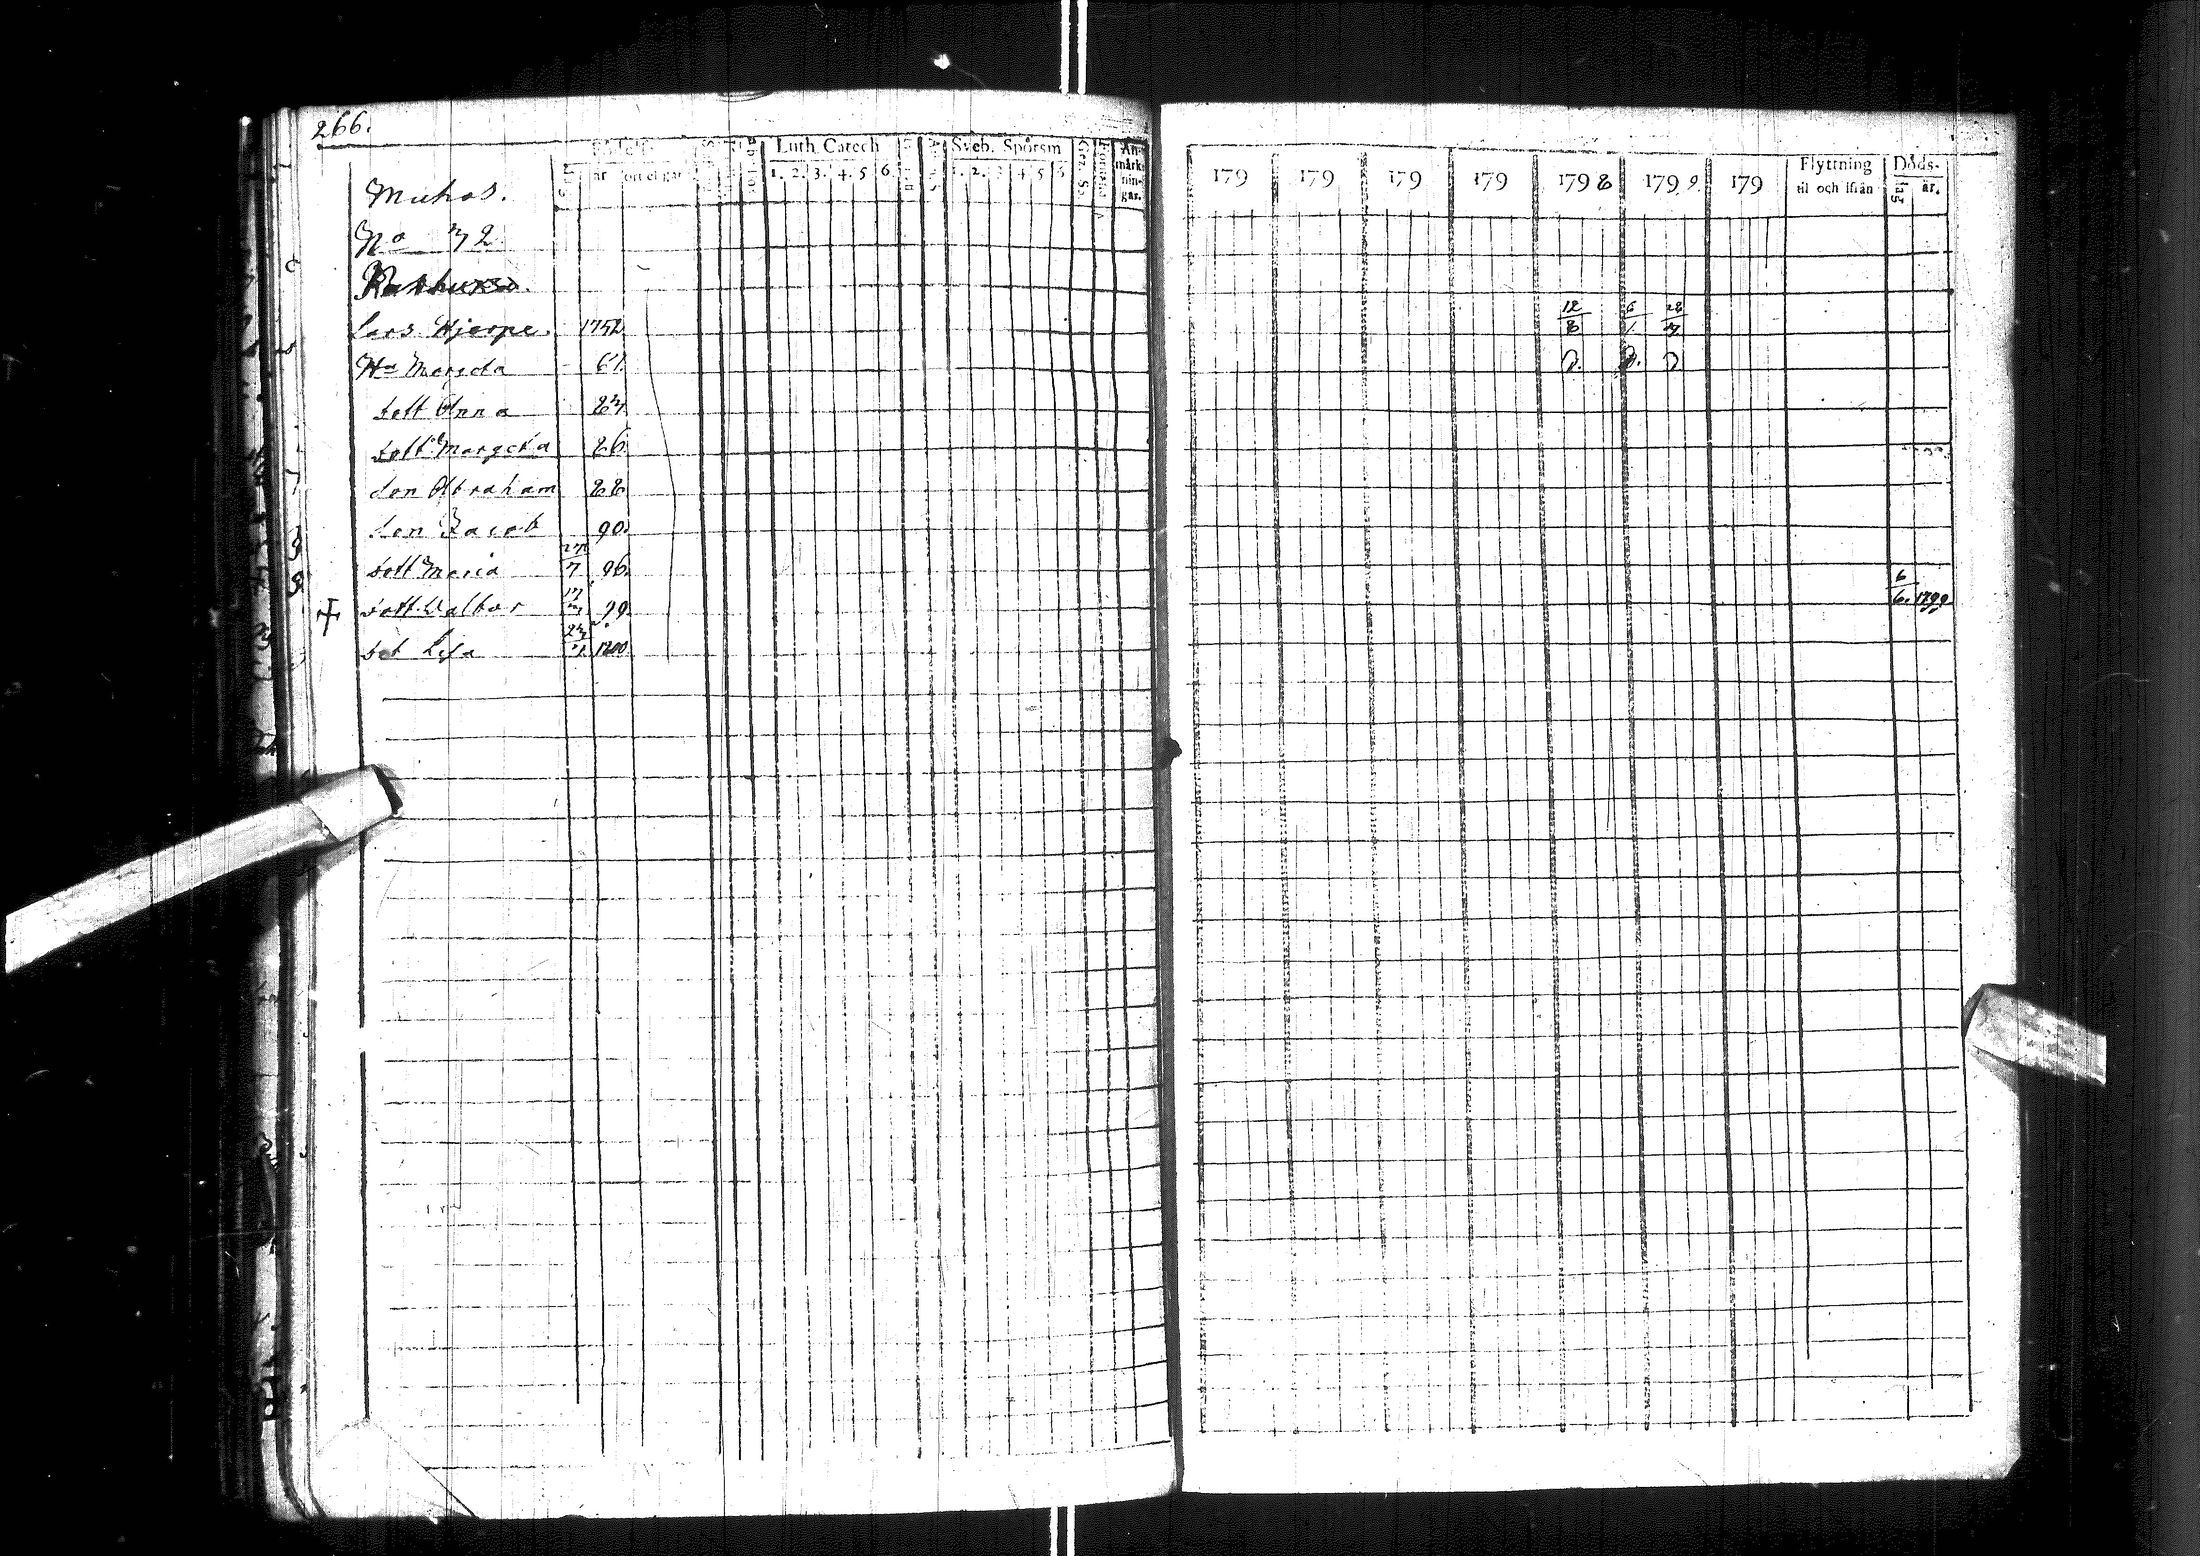 266.
Luth. Catech
Sveb. Spörsm
An-
märk-
nin-
gar.
år
1. 2. 3. 4. 5 6.
1. 2. 3 4 5 6
Muhos.
No 72
Lars Hjerpe. 1752
Ha Margeta 61.
dott Anna 84.
dott Margeta 86
son Abraham 88
son Jacob 90.
dott Maria 7 96.
dott. Walbor 99.
dot Lisa 1800
179 179 179 179 179 8 179 9. 179
Flyttning
til och ifrån
Döds-
år.
12/8 6/1 28/7
D. D. D
6/6. 1799